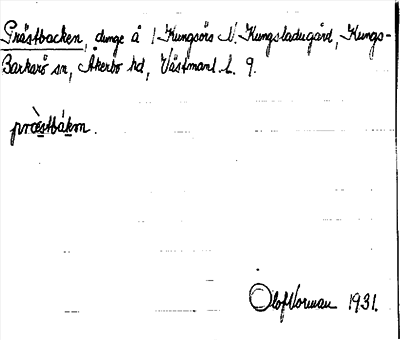 Prästbacken, dunge å 1 Kungsörs N. Kungsladugård, Kungs-
Barkarö sn, Åkerbo hd, Västmanl. l. 9.
præ̀stbákɷn.
Olof Norman 1931.